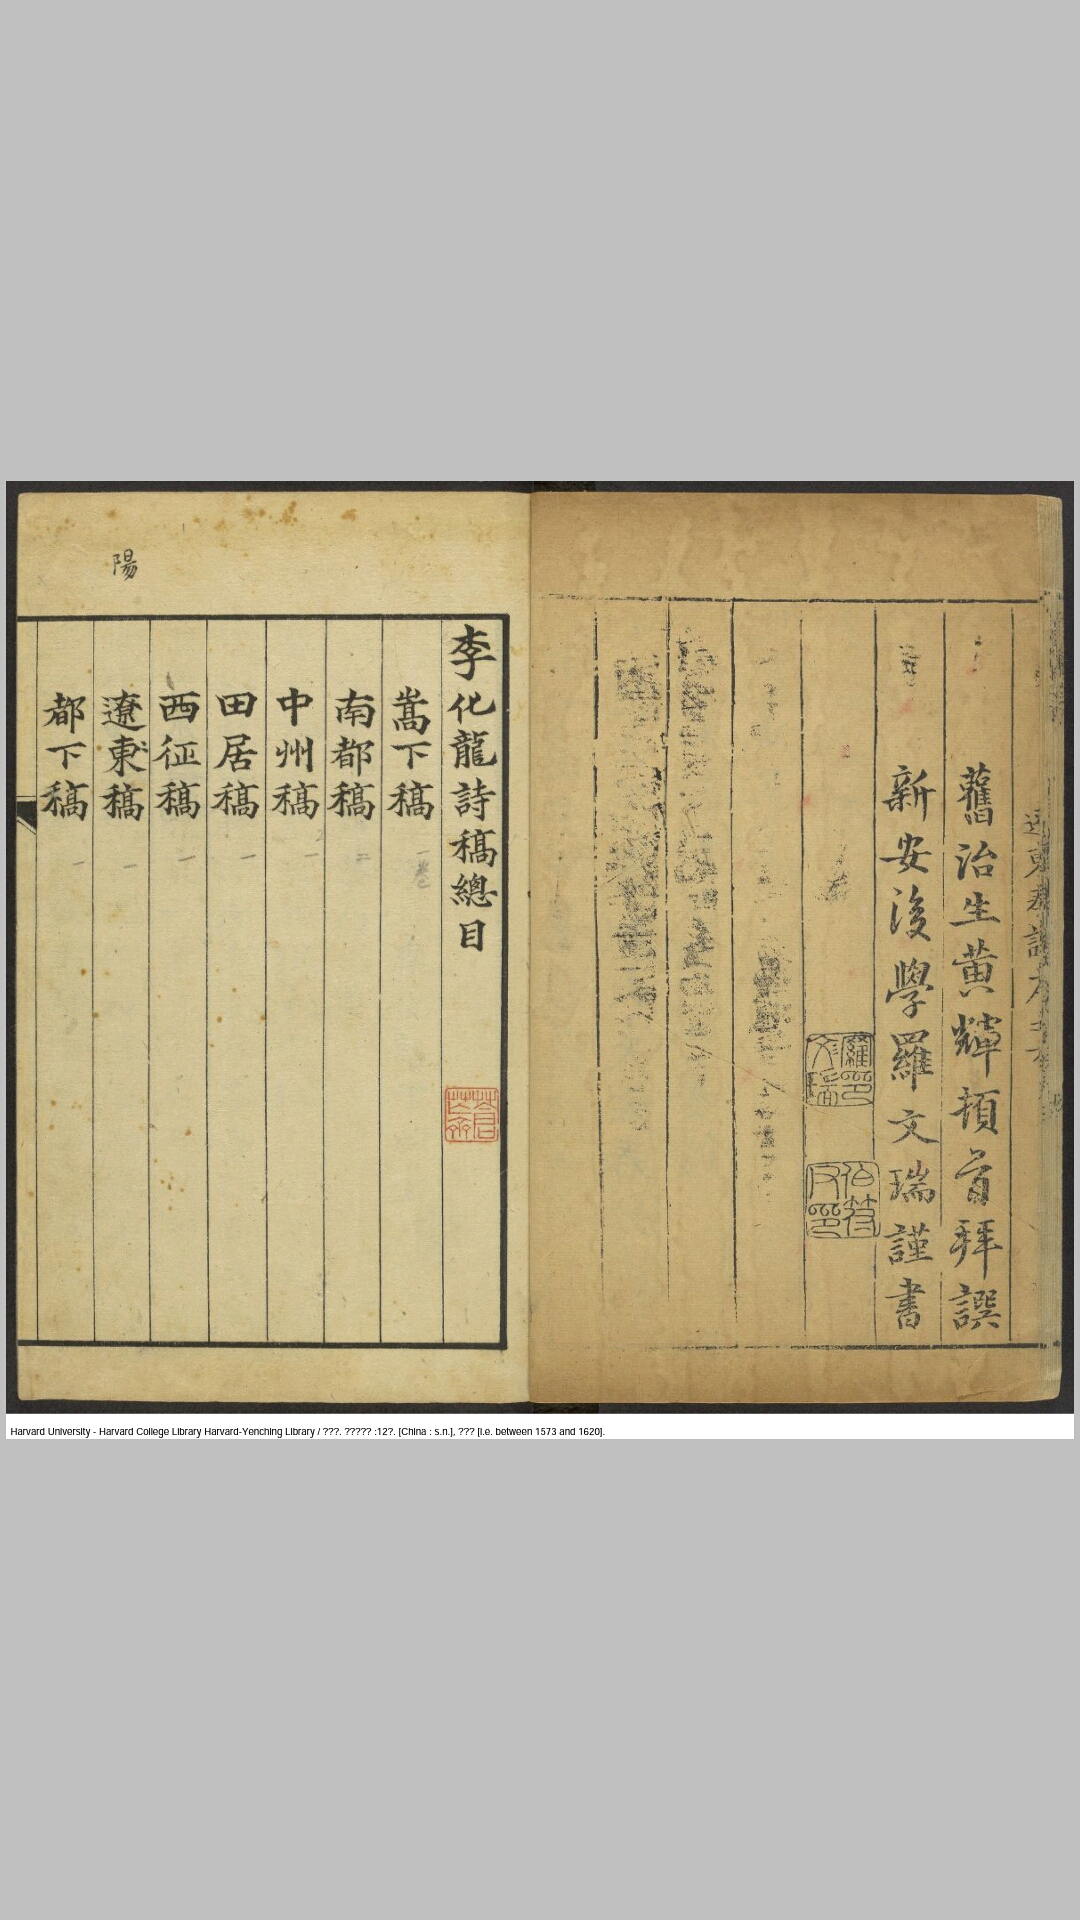 舊治生黃輝頓首拜譔
新安後學羅文瑞謹書
羅文瑞印
李化龍詩稿總目
嵩下稿 一卷
南都稿 二
中州稿 一
田居稿 一
西征稿 一
遼東稿 一
都下稿 一
陽
Harvard University - Harvard College Library Harvard-Yenching Library / ???. ????? :12?. [China : s.n.], ??? [i.e. between 1573 and 1620].